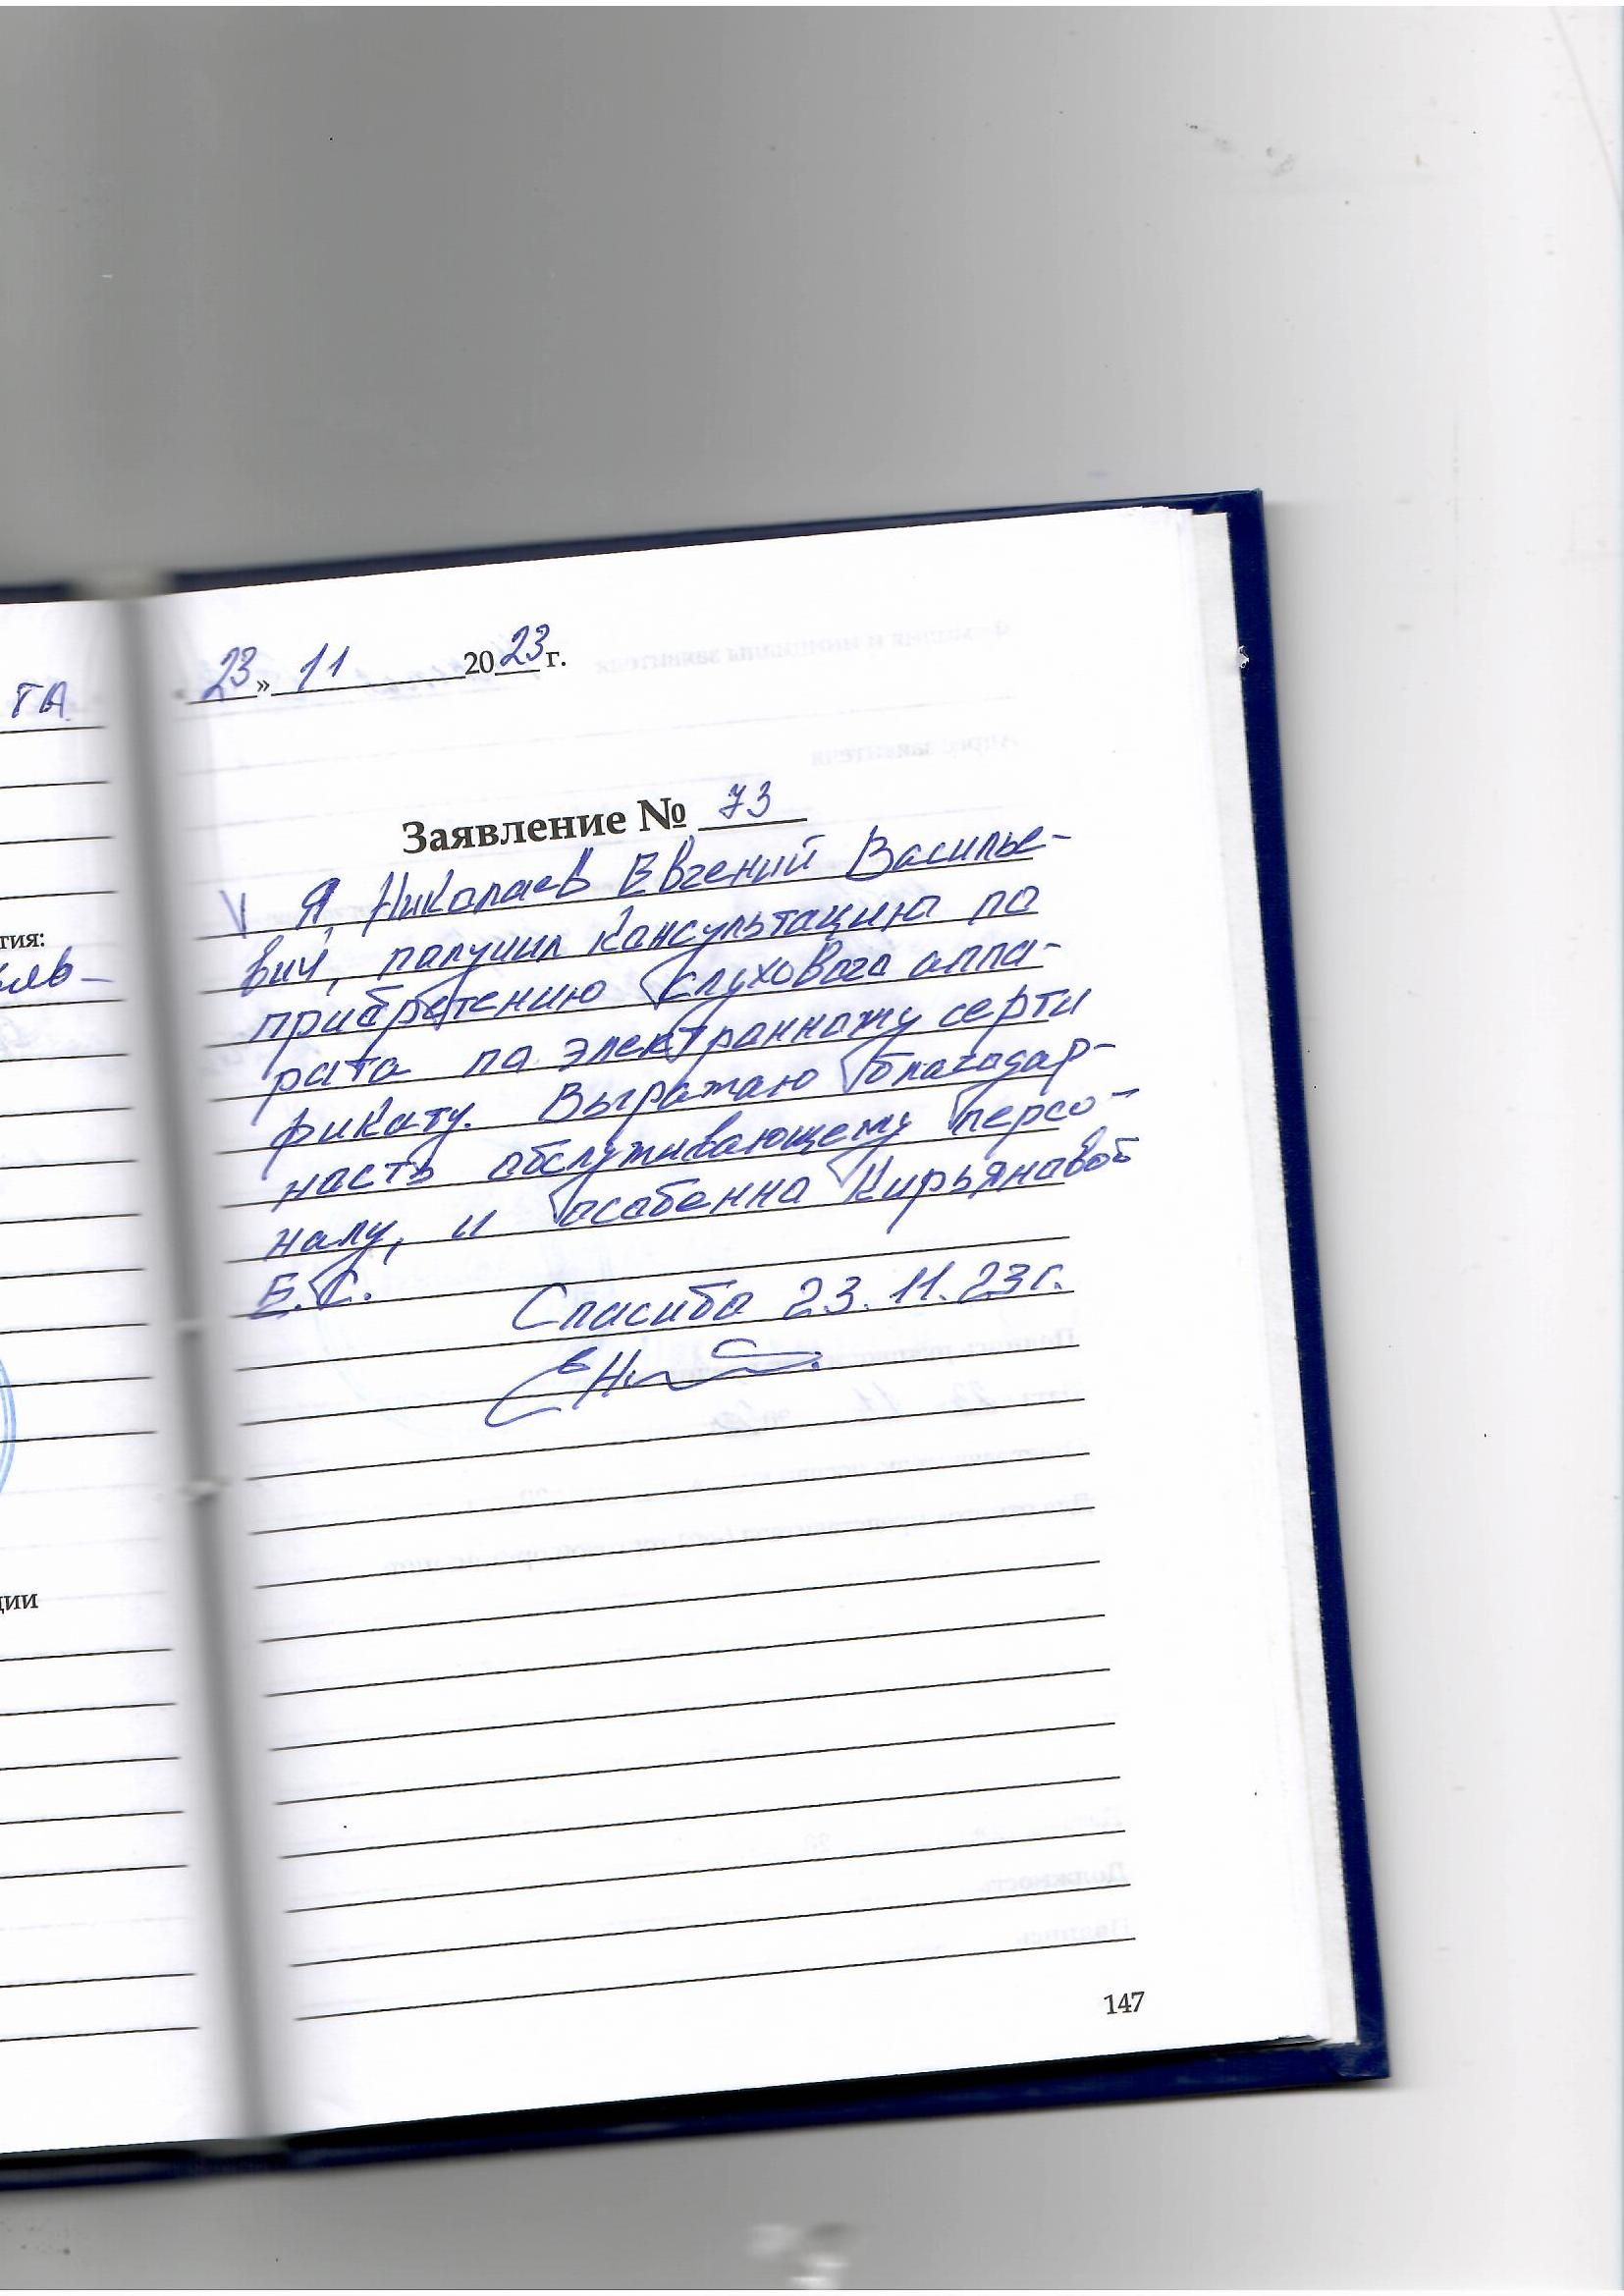 ТА
тия:
ции
23 » 11 2023 г.
Заявление № 73
V Я, Николаев Евгений Василье-
вич, получил консультацию по
приобретению слухового аппа-
рата по электронному серти
фикату. Выражаю благодар-
ность обслуживающему персо-
налу, и особенно Кирьяновой
Е.С.
Спасибо 23.11.23г.
147